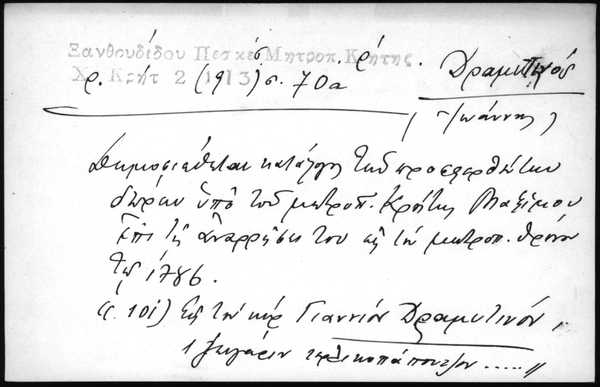 Ξανθουδίδου Πεσκέσια Μητροπ. Κρήτης.
Χρ. Κρήτ 2 (1913) σ. 70α
Δραμυτινός
(Ἰωάννης)
Δημοσιεύεται κατάλογος τῶν προσφερθέντων
δώρων ὑπὸ τοῦ μητροπ. Κρήτης Μαξίμου
ἐπὶ τῇ ἀναρρήσει του εἰς τὸν μητροπ. θρόνον
τῷ 1786.
(σ. 101) Εἰς τὸν κὺρ Γιαννιὸν Δραμυτινόν,,
1 ζυγάριν τερλικοπάπουτζον .....,,